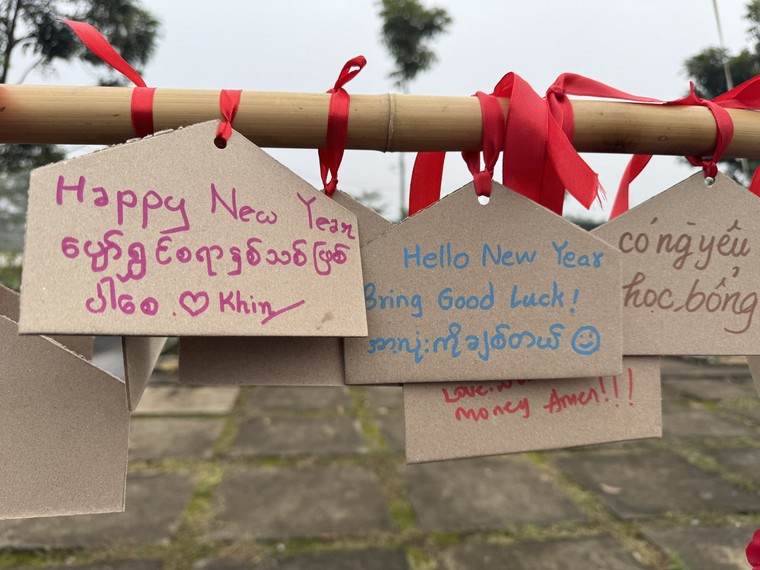 Happy New Year
ပျော်ရွှင်စရာနှစ်သစ်ဖြစ်
ပါစေ ♡ Khin
Hello New Year
Bring Good Luck!
အားလုံးကိုချစ်တယ် ☺
Love.
money Amen!!!
có ng yêu
học bổng